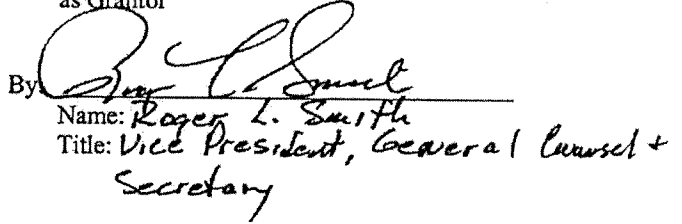 as Grantor
By:
Name: Roger L. Smith
Title: Vice President, General Counsel +
Secretary